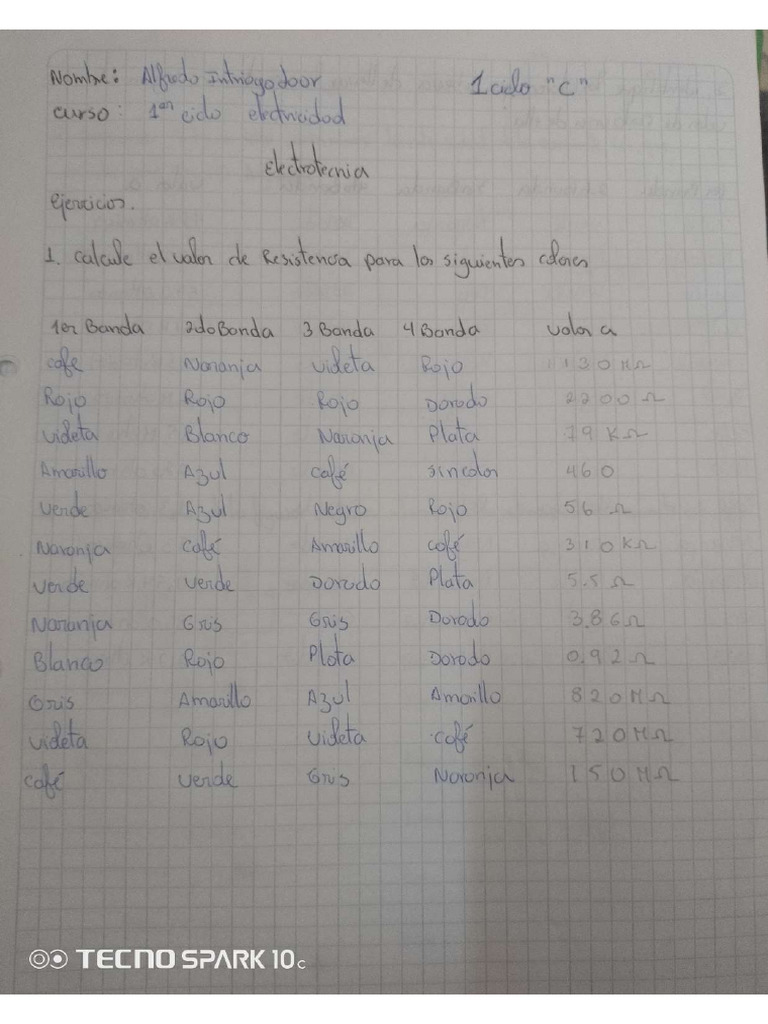 Nombre: Alfredo Intriago dour 1 ciclo "C"
curso: 1er ciclo electricidad
Electrotecnia
ejercicios.
1. calcule el valor de Resistencia para los siguientes colores
1er Banda 2do Banda 3 Banda 4 Banda valor a
cafe Naranja videta Rojo 130 MΩ
Rojo Rojo Rojo Dorodo 2200 Ω
videta Blanco Naranja Plata 79 KΩ
Amarillo Azul café sin color 460
verde Azul Negro Rojo 56 Ω
Naranja café Amarillo café 310KΩ
verde verde Dorodo Plata 5.5 Ω
Naranja Gris Gris Dorodo 3.86Ω
Blanco Rojo Plata Dorodo 0,92Ω
Gris Amarillo Azul Amarillo 820MΩ
videta Rojo videta café 720MΩ
café verde Gris Naranja 150MΩ
TECNO SPARK 10C